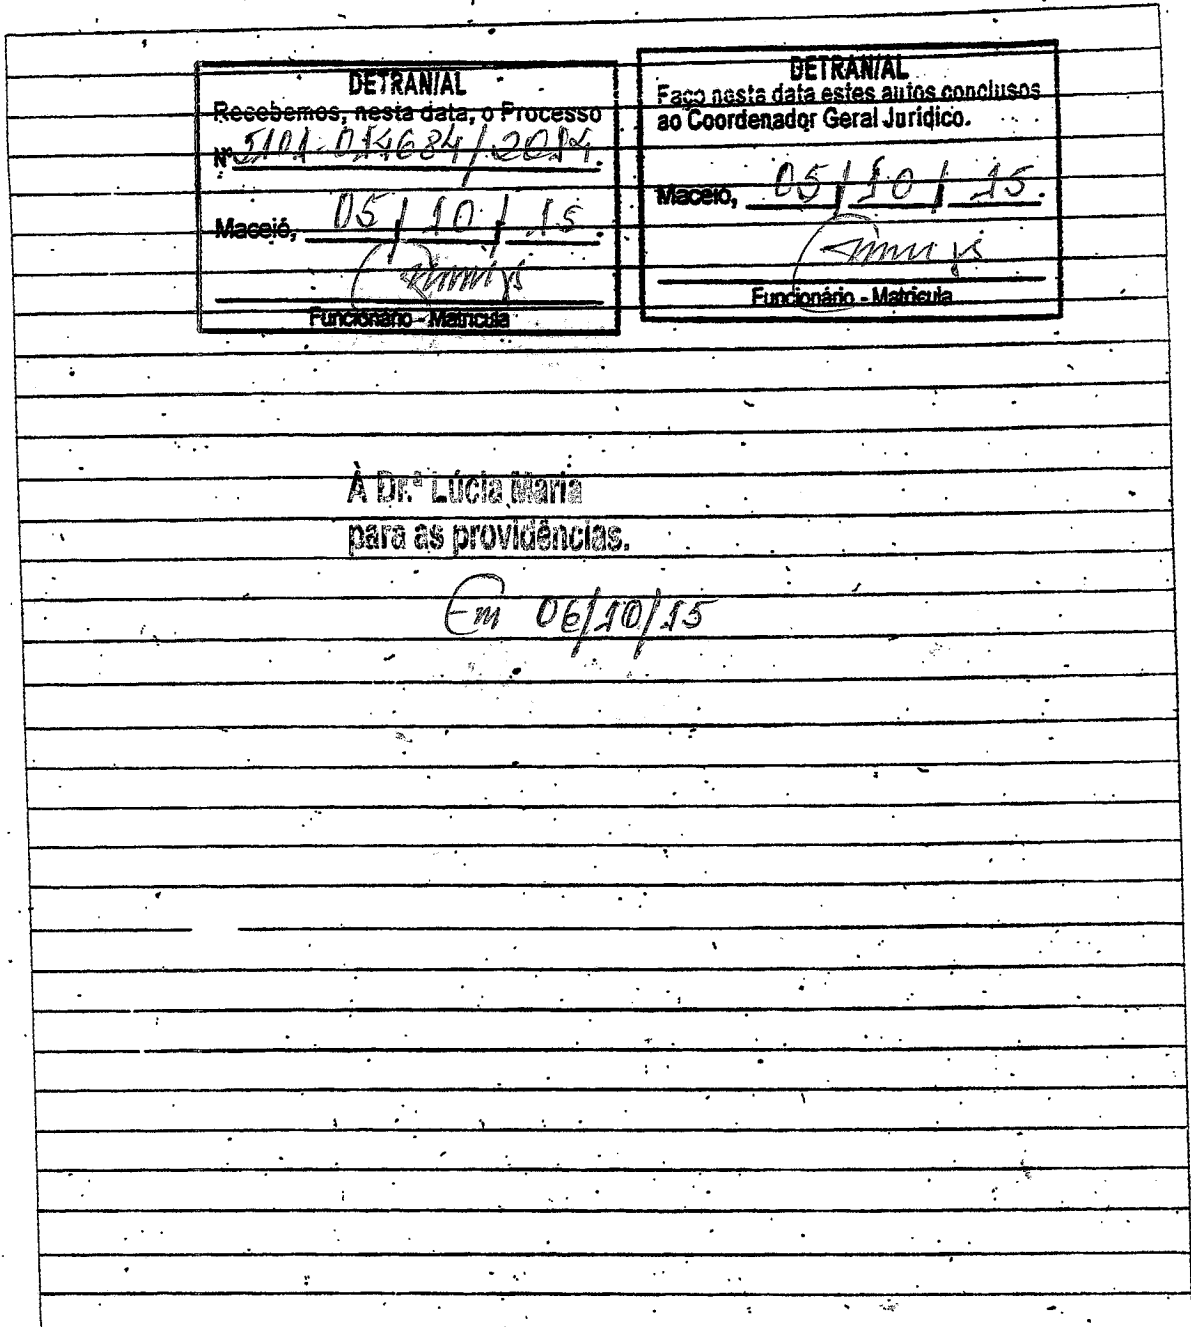 DETRAN/AL
Recebemos, nesta data, o Processo
Nº 5101-014684/2014.
Maceió, 05/10/15.
Funcionário - Matricula
DETRAN/AL
Faço nesta data estes autos conclusos
ao Coordenador Geral Jurídico.
Maceió, 05/10/15.
Funcionário - Matricula
À Dr.ª Lúcia Maria
para as providências.
Em 06/10/15